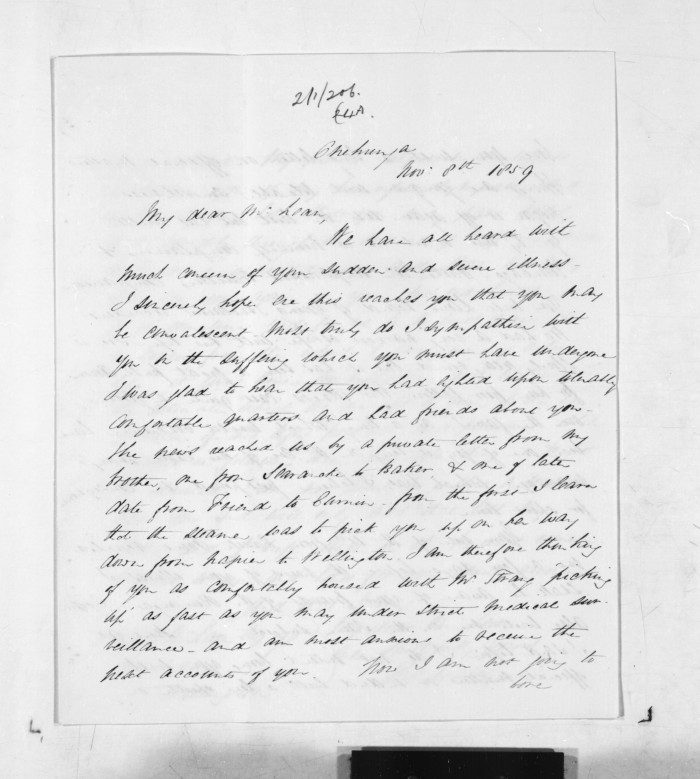 2/1/206.
Onehunga
Nov: 8th 1859
My dear Mr Lean,
We have all heard with
much concern of your sudden and severe illness -
I sincerely hope ere this reaches you that you may
be convalescent. Most truly do I sympathise with
you in the suffering which you must have undergone
I was glad to hear that you had lighted upon tolerably
comfortable quarters and had friends about you -
The news reached us by a private letter from my
brother, one from to Baker & one of late
date from Friend to - from the first I learn
that the steamer was to pick you up on her way
down from Napier to Wellington I am therefore thinking
of you as comfortably housed with Mr Strang picking
up as fast as you may under strict medical sur-
veillance - and am most anxious to receive the
next accounts of you. Now I am not going to
bore